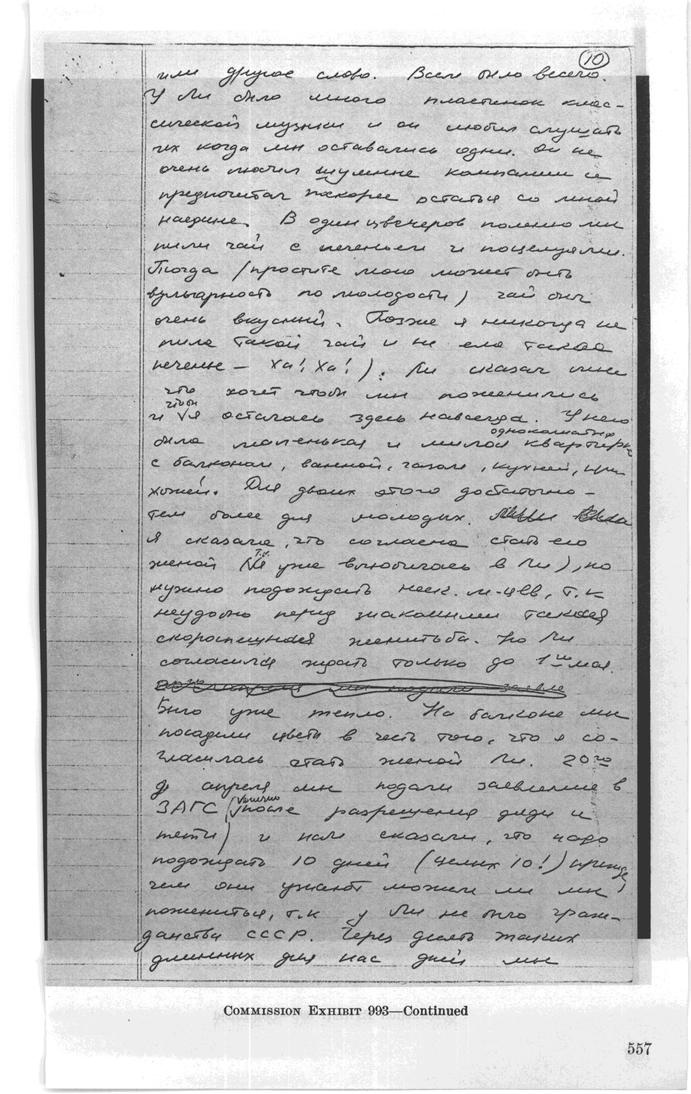 10
или другое слово. Всем было весело.
У Ли было много пластинок клас-
сической музыки и он любил слушать
их когда мы оставались одни. Он не
очень любил шумные компании и
предпочитал скорее остаться со мной
наедине. В один из вечеров помню мы
пили чай с печеньем и поцелуями.
Тогда (простите мою может быть
вульгарность по молодости) чай был
очень вкусный. Позже я никогда не
пила такой чай и не ела такое
печенье — Ха! Ха!). Ли сказал мне
что хочет чтобы мы поженились
и чтобы я осталась здесь навсегда. У него
была маленькая и милая однокомнатная квартирка
с балконом, ванной, газом, кухней, при-
хожей. Для двоих этого достаточно –
тем более для молодых.
Я сказала, что согласна стать его
женой (т.к. я уже влюбилась в Ли), но
нужно подождать неск. м-цев, т.к
неудобно перед знакомыми такая
скороспешная женитьба. Но Ли
согласился ждать только до 1го мая.
Было уже тепло. На балконе мы
посадили цветы в честь того, что я со-
гласилась стать женой Ли. 20го
апреля мы подали заявление в
ЗАГС (конечно после разрешения дяди и
тети) и нам сказали, что надо
подождать 10 дней (целых 10!) прежде,
чем они узнают можем ли мы
пожениться, т.к у Ли не было граж-
данства СССР. Через десять таких
длинных для нас дней мы
COMMISSION EXHIBIT 993—Continued
557